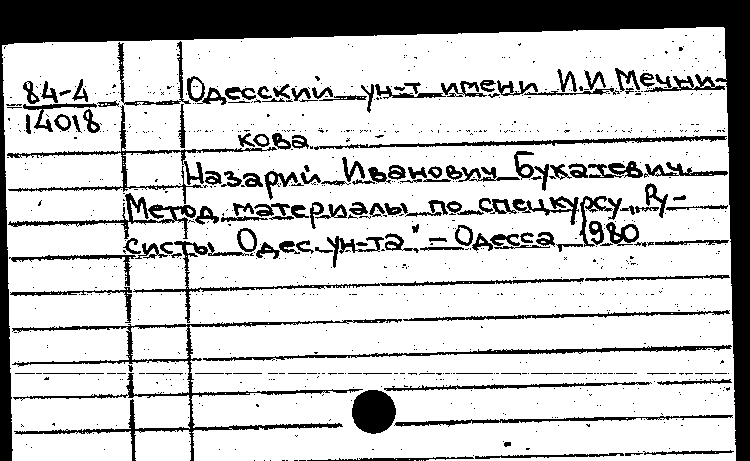 84-4
14018
Одесский ун-т имени И.И.Мечни-
кова
Назарий Иванович Букатевич.
Метод. материалы по спецкурсу „Ру-
систы Одес. ун-та" – Одесса, 1980